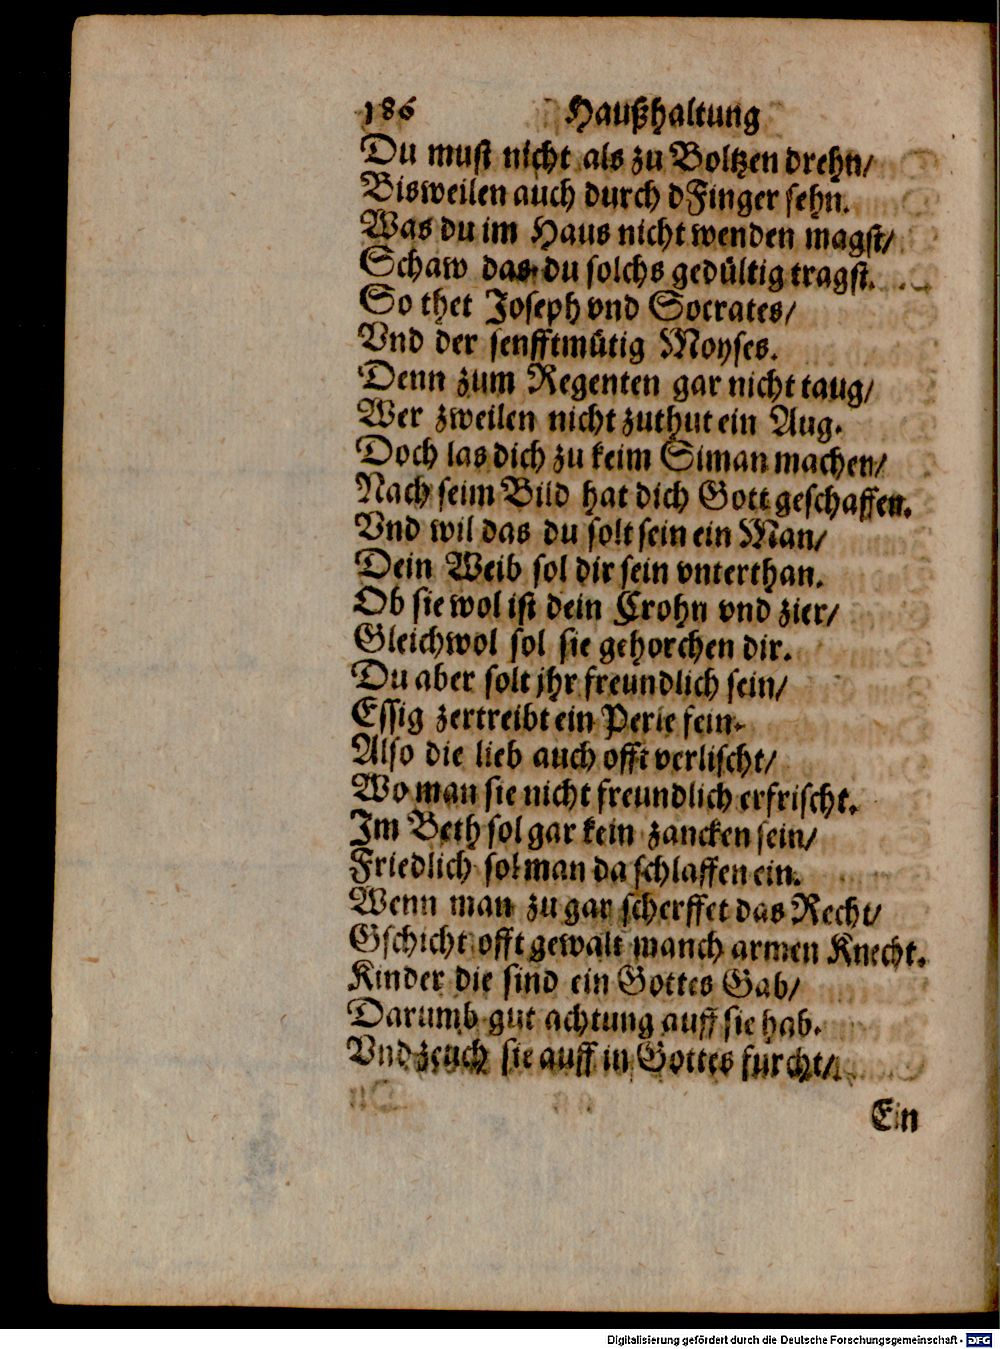 186 Haußhaltung
Du must nicht als zu Boltzen drehn/
Bisweilen auch durch dFinger sehn.
Was du im Haus nicht wenden magst/
Schaw das du solchs gedültig tragst.
So thet Joseph vnd Socrates/
Vnd der senfftmütig Moyses.
Denn zum Regenten gar nicht taug/
Wer zweilen nicht zuthut ein Aug.
Doch las dich zu keim Siman machen/
Nach seim Bild hat dich Gott geschaffen.
Vnd wil das du solt sein ein Man/
Dein Weib sol dir sein vnterthan.
Ob sie wol ist dein Crohn vnd zier/
Gleichwol sol sie gehorchen dir.
Du aber solt jhr freundlich sein/
Essig zertreibt ein Perle fein.
Also die lieb auch offt verlischt/
Wo man sie nicht freundlich erfrischt.
Im Beth sol gar kein zancken sein/
Friedlich sol man da schlaffen ein.
Wenn man zu gar scherffet das Recht/
Gschicht offt gewalt manch armen Knecht.
Kinder die sind ein Gottes Gab/
Darumb gut achtung auff sie hab.
Vnd zeuch sie auff in Gottes furcht/
Ein
Digitalisierung gefördert durch die Deutsche Forschungsgemeinschaft - DFG